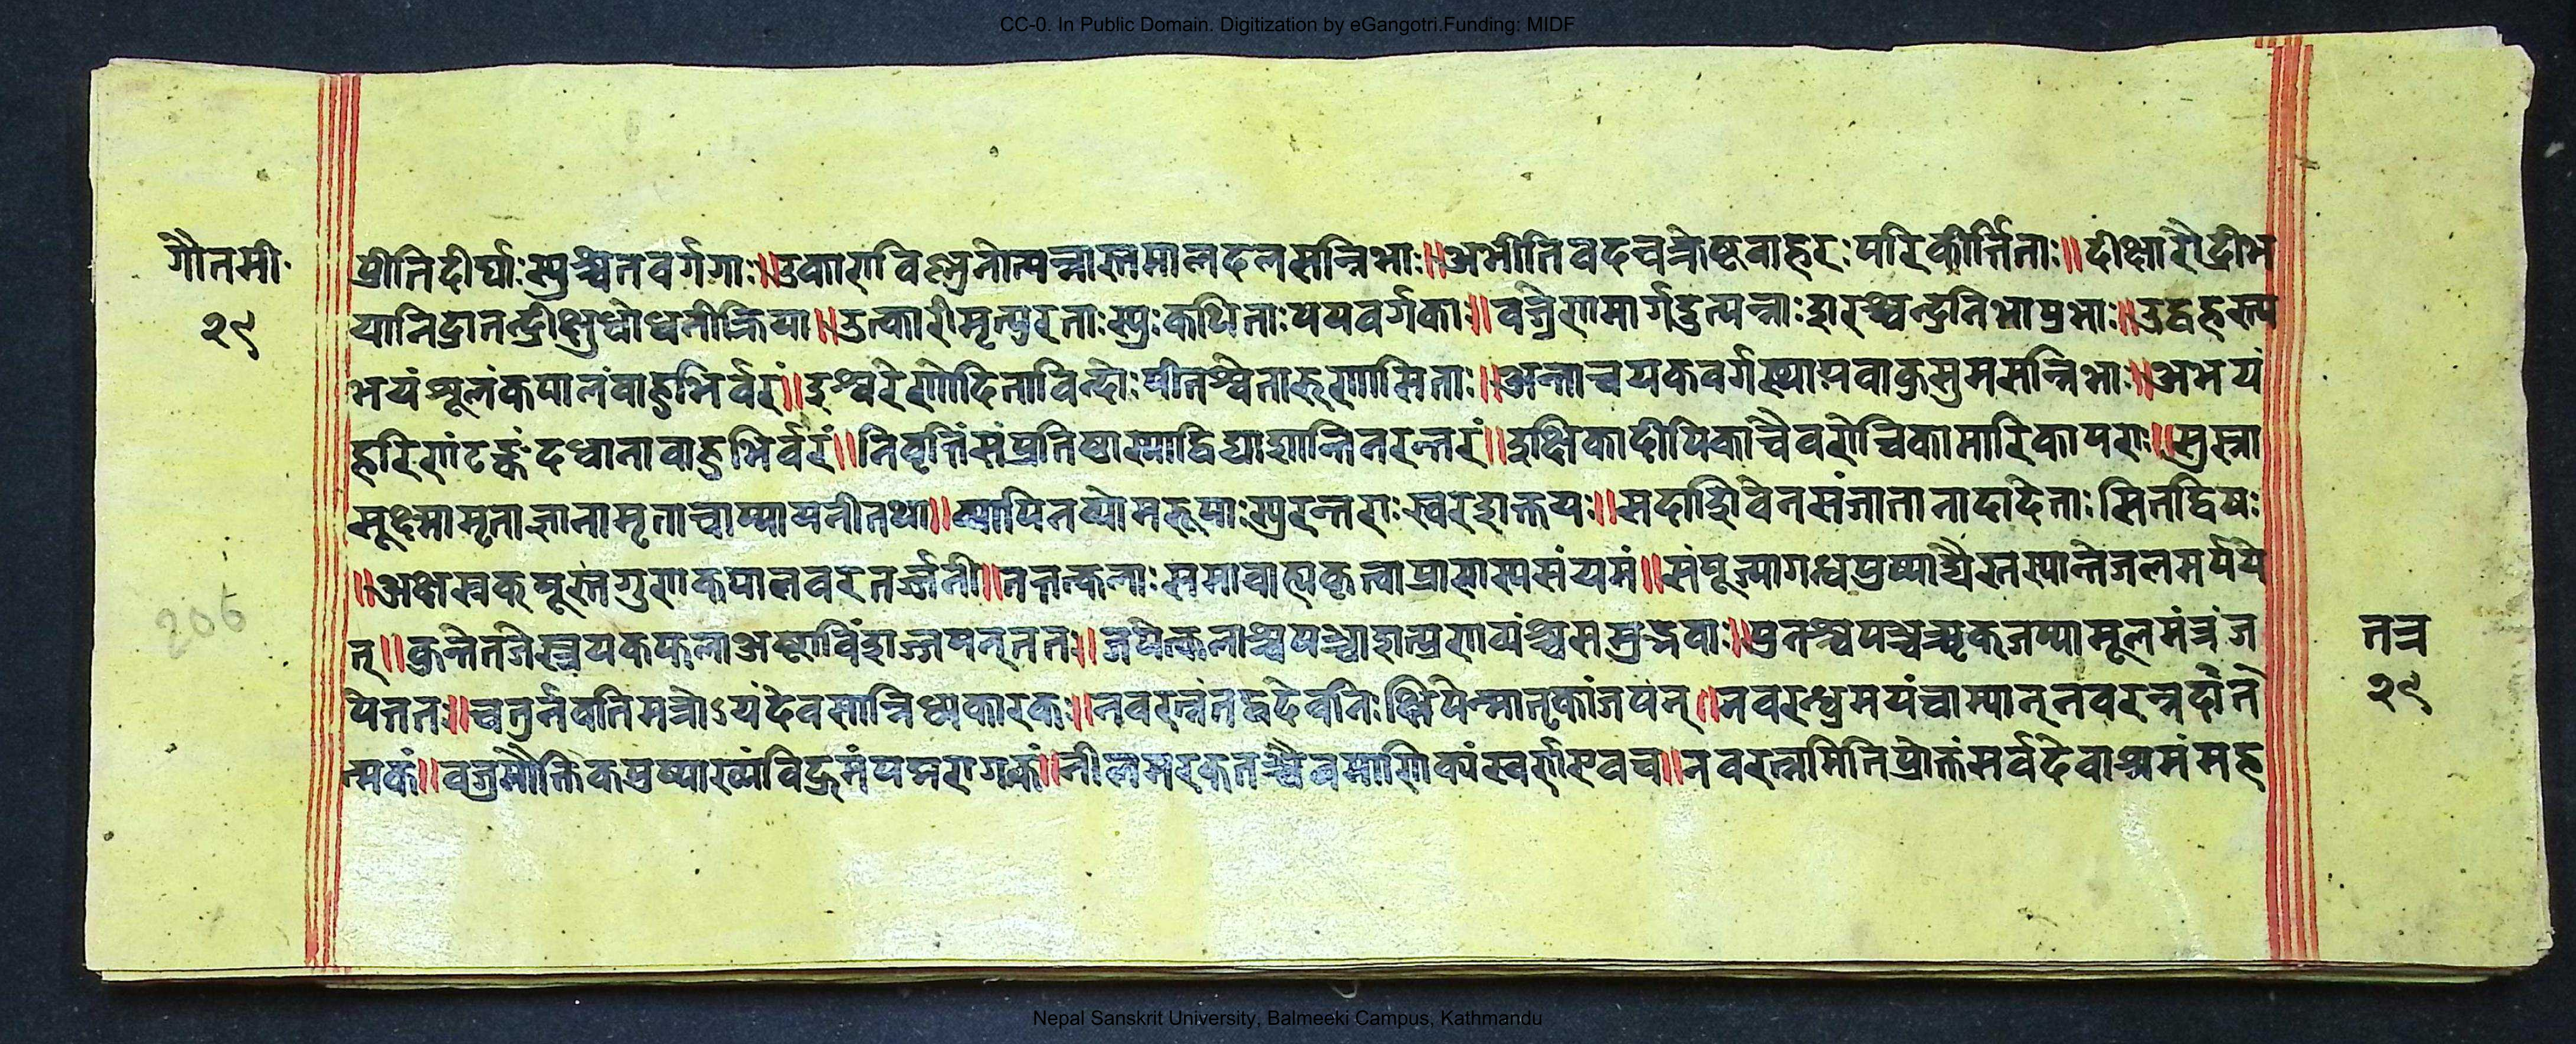 CC-0. In Public Domain. Digitization by eGangotri.Funding: MIDF
गौतमी
२९
प्रीतिदीर्घाःस्युश्चतवर्गगाः॥उकाराविष्णुनोत्पन्नास्तमालदलसन्निभाः॥अभीतिवदचक्रेष्टवाहरःपरिकीर्त्तिताः॥दीक्षारौद्रीभ
यानिद्रातन्द्रीक्षुधोधनीक्रिया॥उत्कारीमृत्युरताःस्युःकथिताःपयवर्गकाः॥ शरच्चन्द्रनिभाप्रभाः॥उद्वहस्त्य
भयंशूलंकपालंवाहुभिर्वरं॥इश्वरेणोदिताविन्दोःपीतश्वेतारुणासिताः॥ सुमसन्निभाः॥अभयं
हरिणंटङ्कंदधानावाहुभिर्वरं॥निवृत्तिंसंप्रतिष्ठास्याद्विद्याशान्तिनरन्तरं॥इन्धिकादीपिकाचैवरोचिकामोरिकापराः॥
सूक्ष्मामृताज्ञानामृताचाप्यायनीतथा॥व्यापिनव्योमरूपाःस्युरन्तराःस्वरशक्तयः॥सदाशिवेनसंजातानादादेताःसितद्विषः
॥अक्षस्रक्पुस्तगुणकपालवरतर्ज्जनी॥तत्तत्कलाःसमावाह्यकृत्वाप्राणस्यसंयमं॥संपूज्यागन्धपुष्पाद्यैस्तस्यान्तेजलमर्पये
त्॥ अष्टाविंशज्जपन्ततः॥जपेत्कलाश्चपञ्चाशत्प्रणव्यंश्चसमुद्भवाः॥पुनश्चपञ्चऋकजप्यामूलमंत्रंज
पेत्ततः॥चतुर्नवतिमन्त्रोऽयंदेवसान्निध्यकारकः॥नवरत्नंतद्वदेवनिःक्षिपेन्मातृकांजपन्॥नवरन्ध्रमयंचाम्यान्नवरत्नदात
त्मकं॥वज्रमौक्तिकपुष्पाख्यंविद्रुमंपद्मरागकं॥नीलमरकतश्चैवमाणिक्यंस्वर्णएवच॥नवरत्नमितिप्रोक्तंसर्वदेवाश्रमंमह
206
तत्र
२९
Nepal Sanskrit University, Balmeeki Campus, Kathmandu